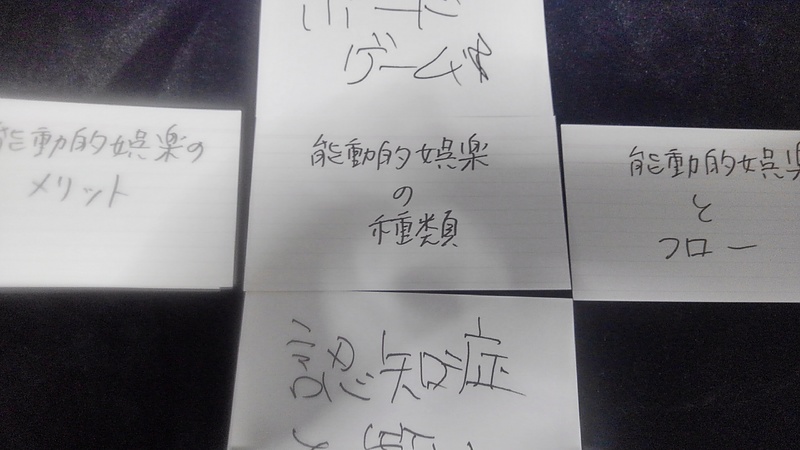 ボード
ゲーム
能動的娯楽の
メリット
能動的娯楽
の
種類
能動的娯楽
と
フロー
認知症